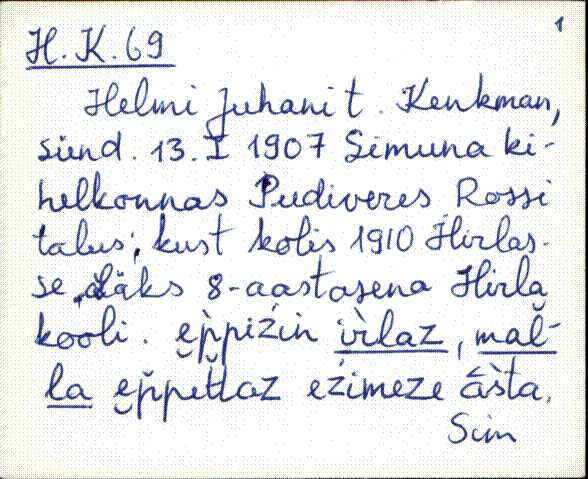 1
H.K.69
Helmi Juhani t. Kenkman,
sünd. 13. I 1907 Simuna ki-
helkonnas Pudiveres Rossi
talus, kust kolis 1910 Hirlas-
se, läks 8-aastasena Hirla
kooli. e̬p̀piz̀in ìr̀laz, mal̆-
la e̬p̆pet̆laz ez̀imeze ās̀ta.
Sim